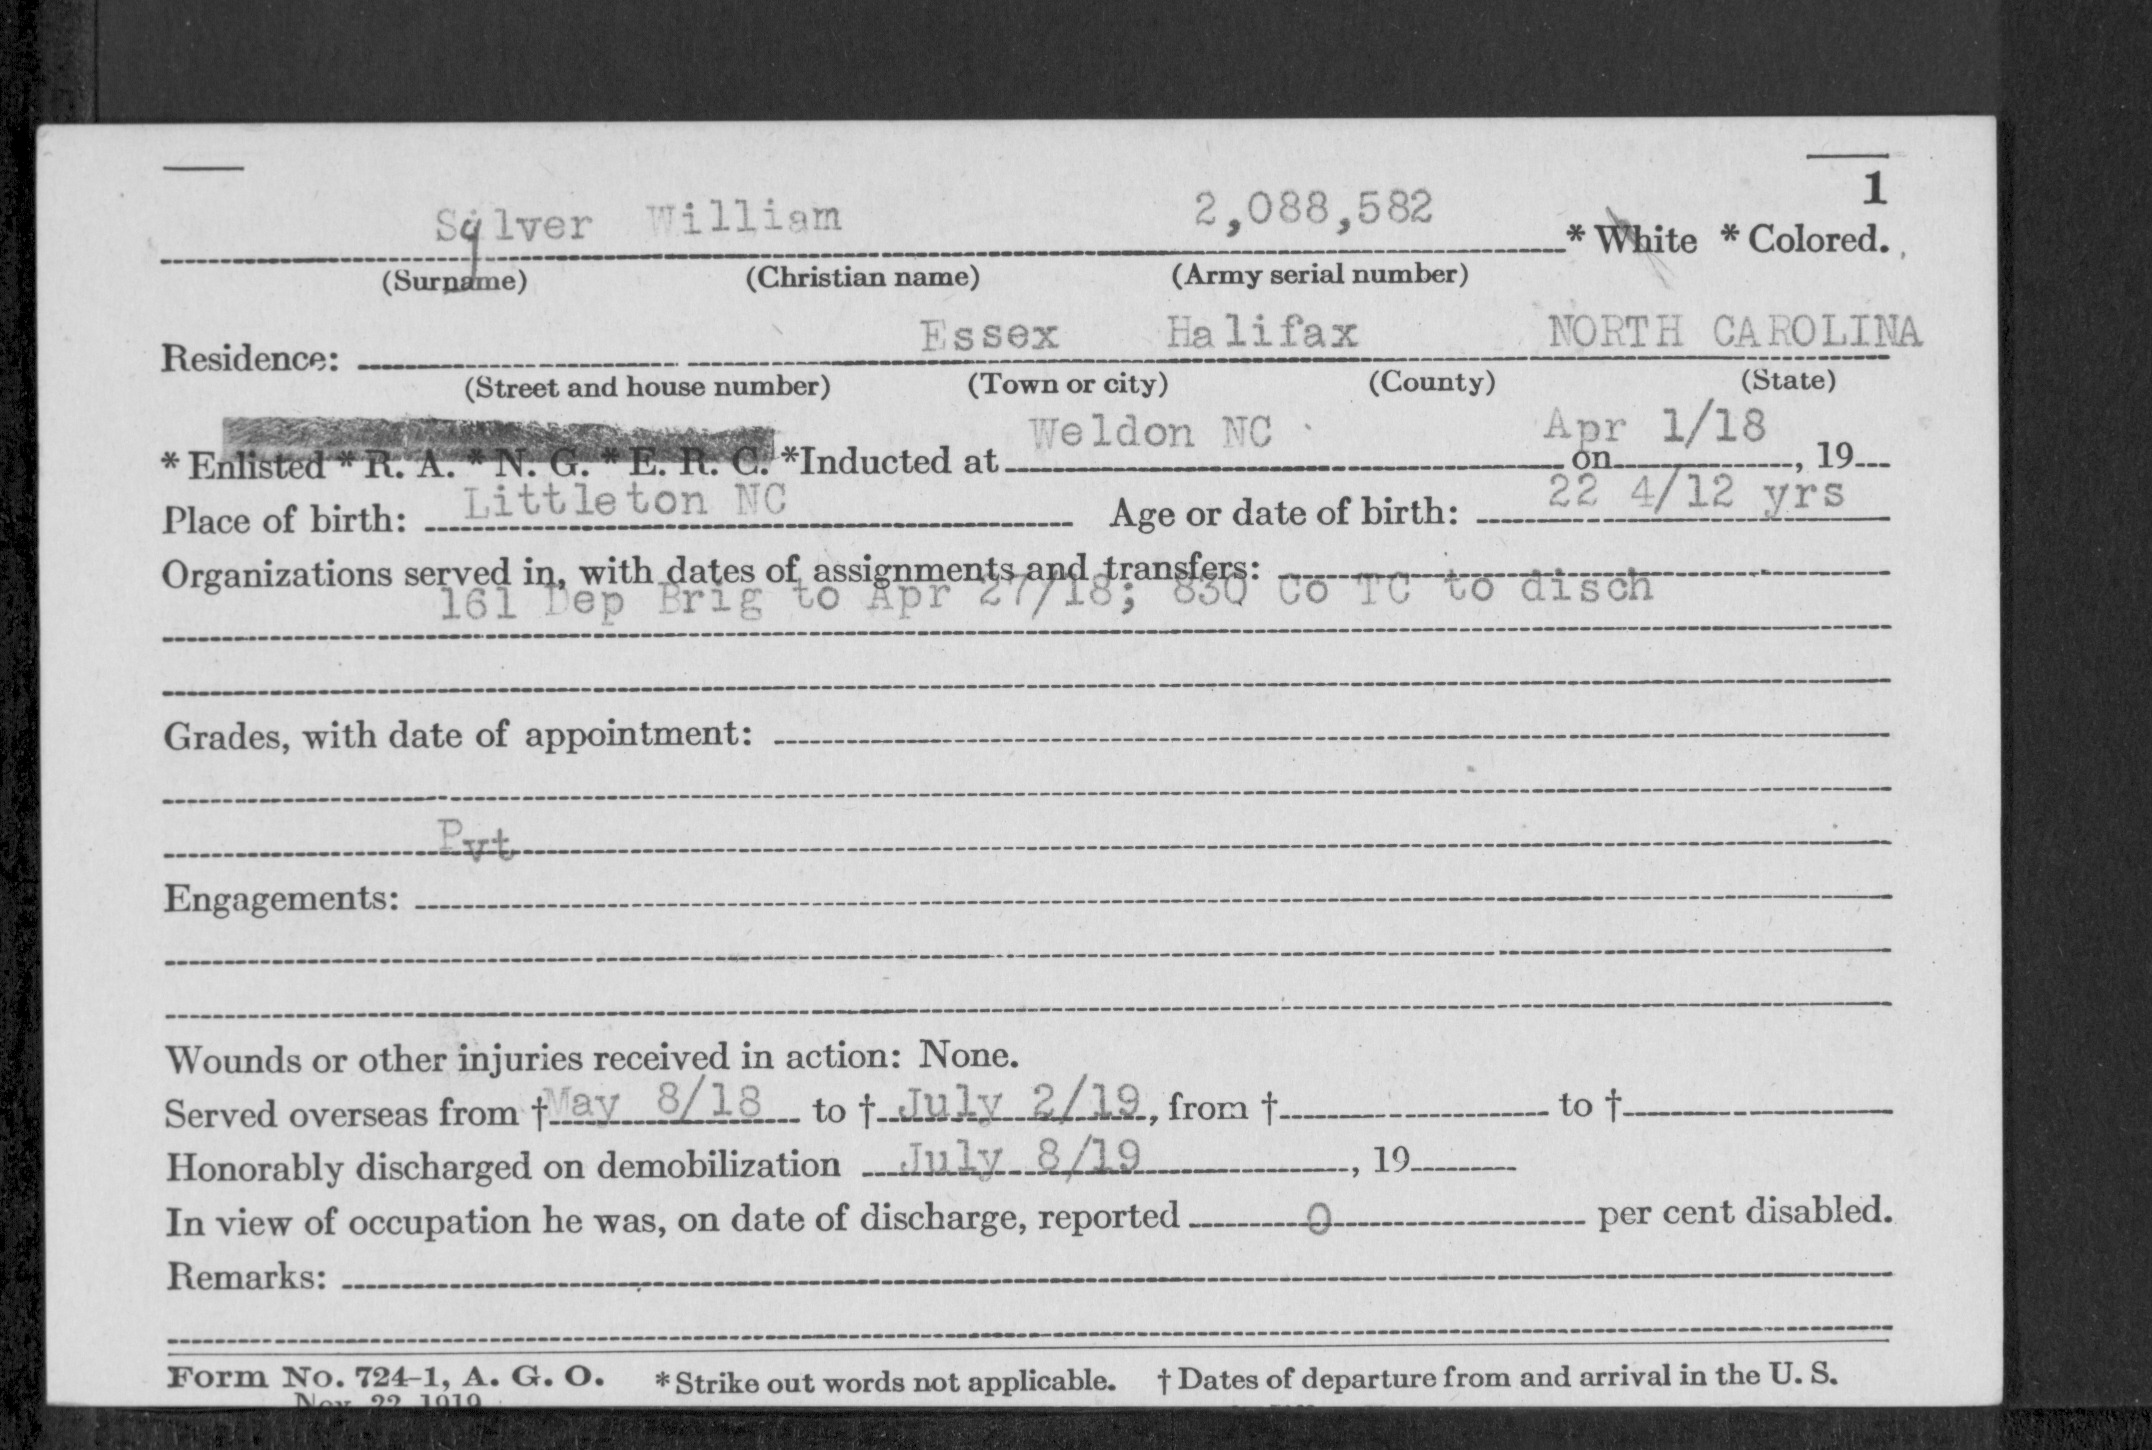 1
Sylver William 2,088,582 * White * Colored.
(Surname) (Christian name) (Army serial number)
Residence: Essex Halifax NORTH CAROLINA
(Street and house number) (Town or city) (County) (State)
* Enlisted * R. A. * N. G. * E. R. C. *Inducted at Weldon NC on Apr 1/18, 19
Place of birth: Littleton NC Age or date of birth: 22 4/12 yrs
Organizations served in, with dates of assignments and transfers:
161 Dep Brig to Apr 27/18; 830 Co TC to disch
Grades, with date of appointment:
Pvt
Engagements:
Wounds or other injuries received in action: None.
Served overseas from † May 8/18 to † July 2/19, from † to †
Honorably discharged on demobilization July 8/19, 19
In view of occupation he was, on date of discharge, reported 0 per cent disabled.
Remarks:
Form No. 724-1, A. G. O. * Strike out words not applicable. † Dates of departure from and arrival in the U. S.
Nov. 22, 1919.